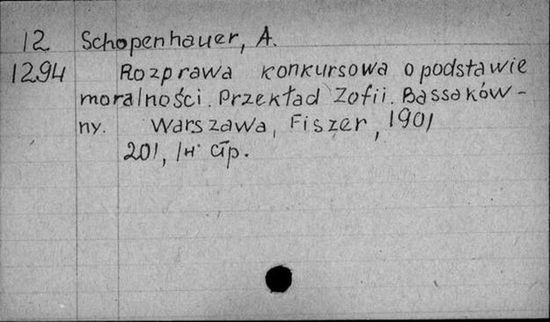 12 Schopenhauer, A.
1294 Rozprawa konkursowa o podstawie
moralności. Przekład Zofii. Bassaków-
ny. Warszawa, Fiszer, 1901
201, стр.